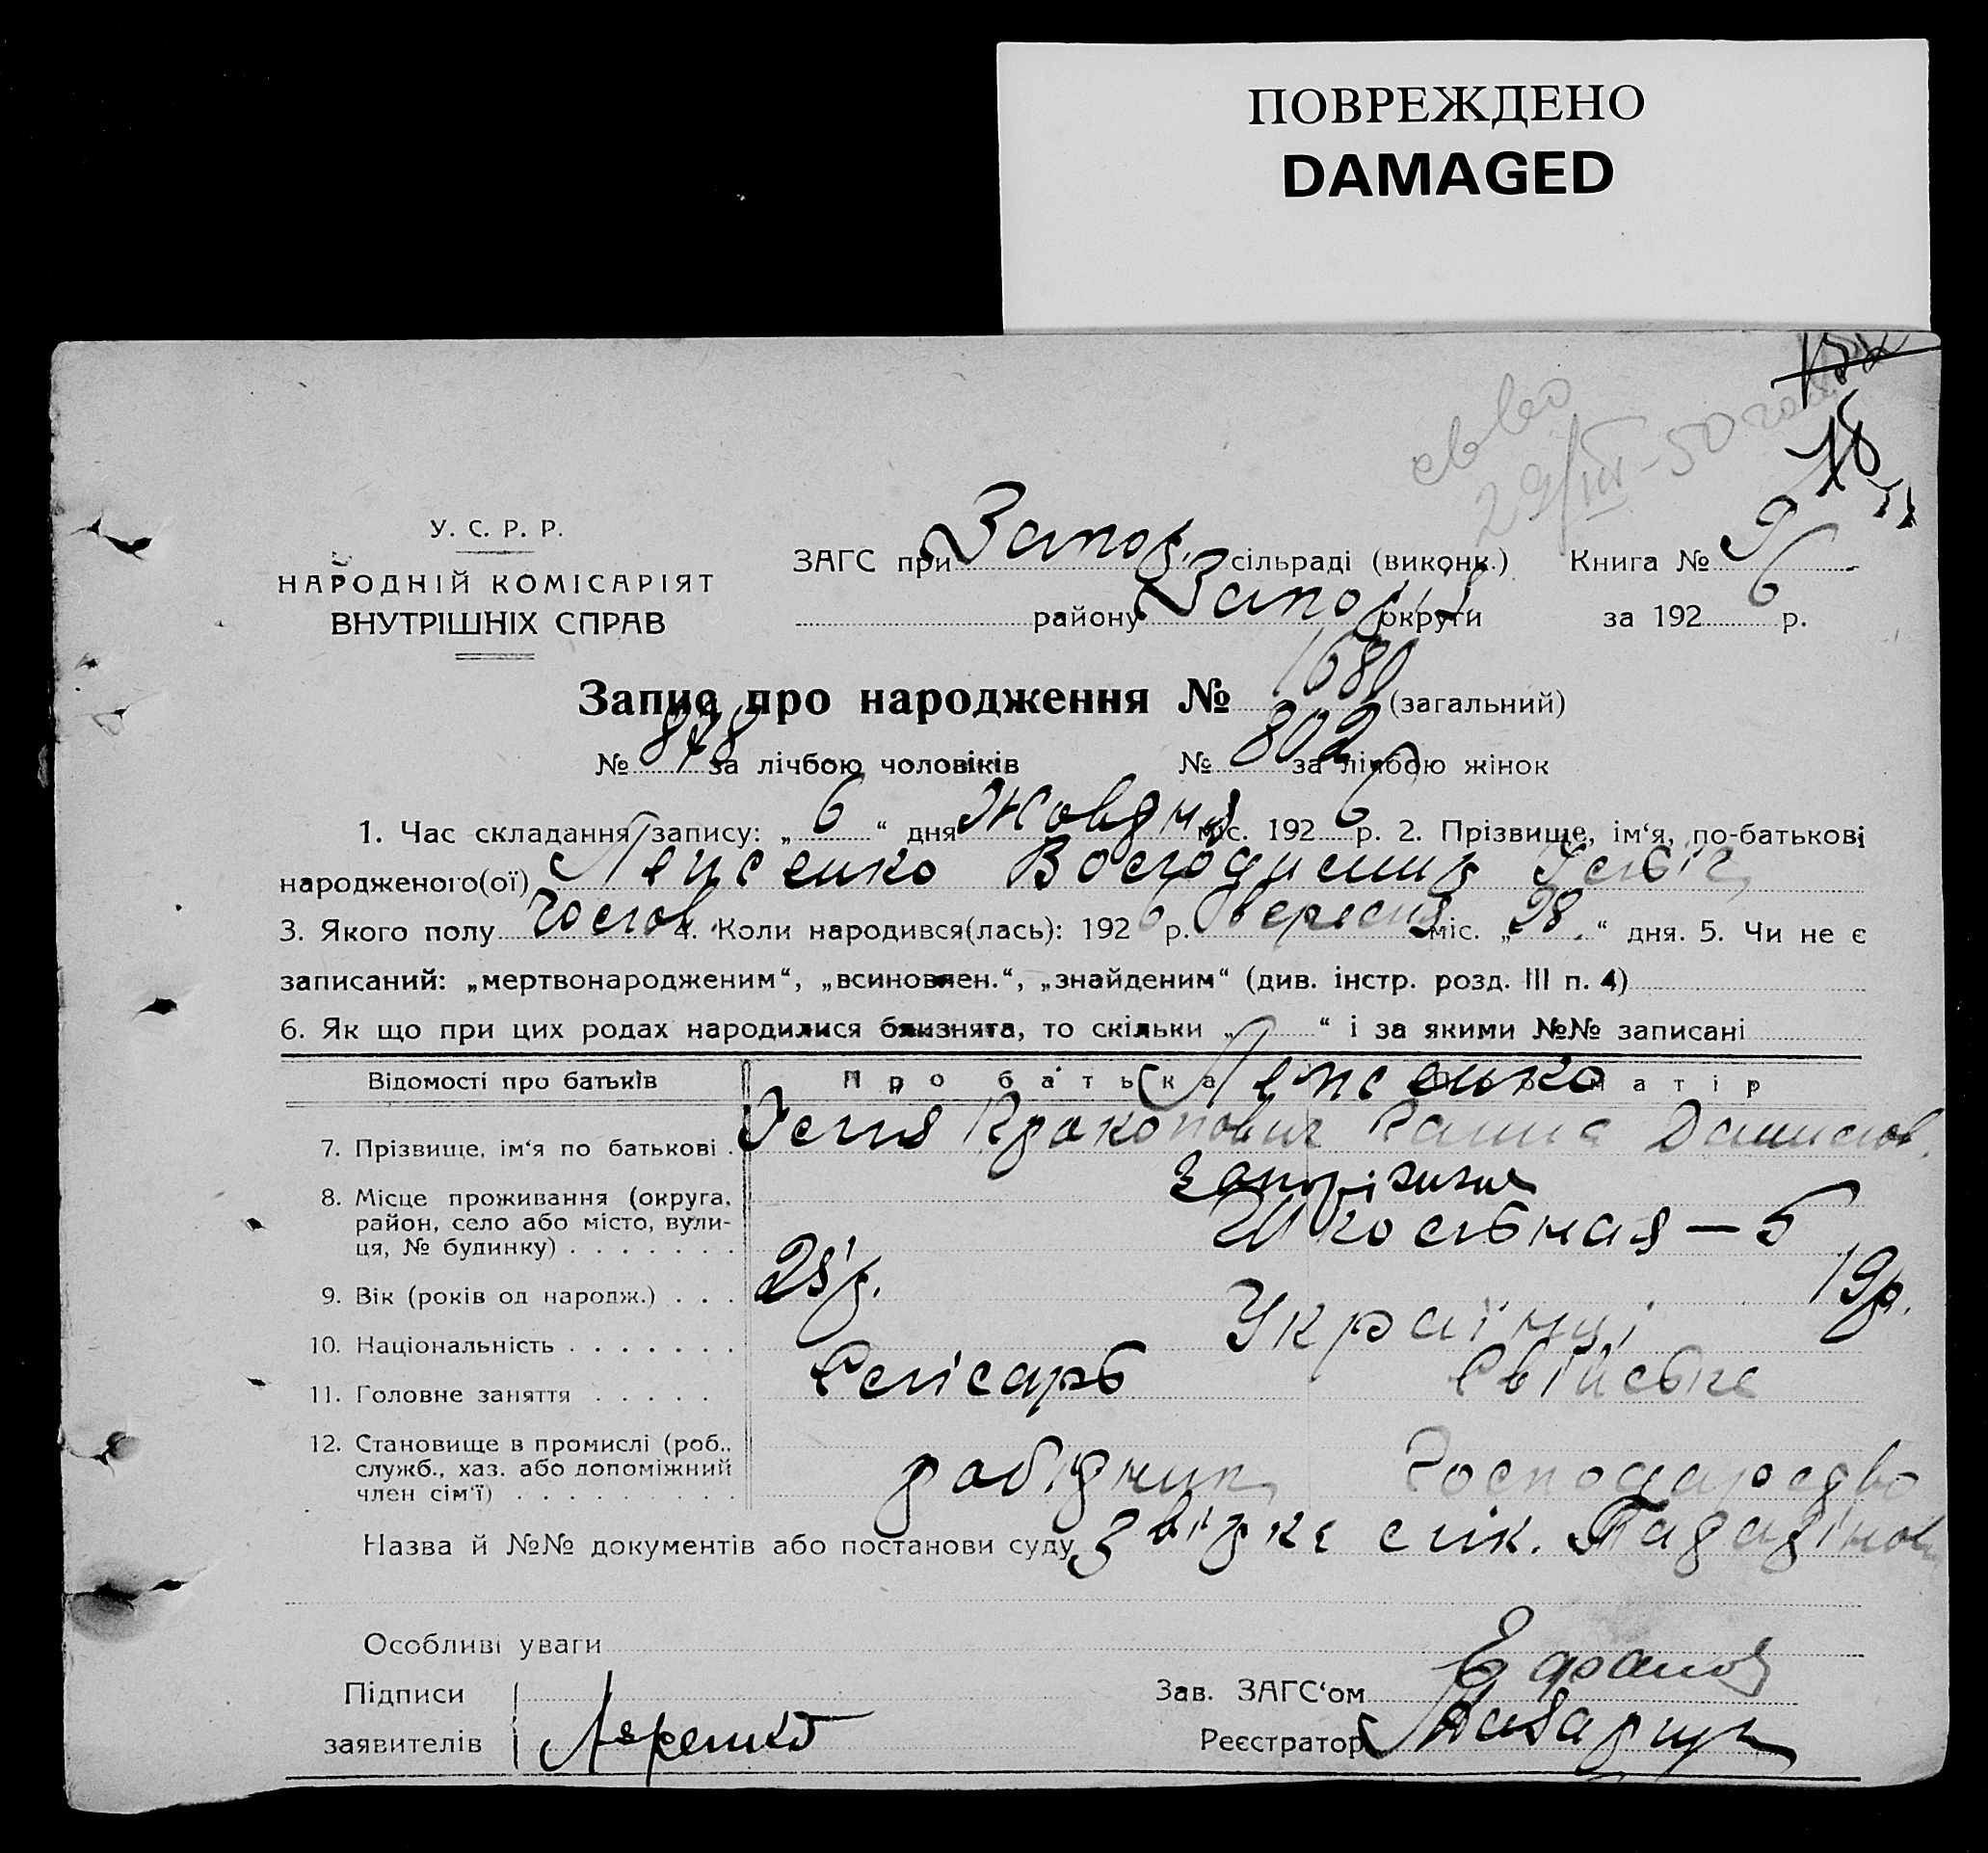 ПОВРЕЖДЕНО
DAMAGED
29/III-50
18
У. С. Р. Р.
НАРОДНІЙ КОМІСАРІЯТ
ВНУТРІШНІХ СПРАВ
ЗАГС при Запор. сільраді (виконк.) Книга № 9
району Запор. округи за 1926 р.
Запис про народження № 1680 (загальний)
№ 878 за лічбою чоловіків № 802 за лічбою жінок
1. Час складання запису: „6“ дня Жовтня міс. 1926 р. 2. Прізвище, ім‘я, по-батькові
народженого(ої) Володимир
3. Якого полу Чолов. 4. Коли народився(лась): 1926 р. вересня міс. „28“ дня. 5. Чи не є
записаний: „мертвонародженим“, „всиновлен.“, „знайденим“ (див. інстр. розд. III п. 4)
6. Як що при цих родах народилися близнята, то скільки „ “ і за якими №№ записані
Відомості про батьків Про батька Про матір
7. Прізвище, ім‘я по батькові . Ганна Данилов.
8. Місце проживання (округа, Запоріжжя
район, село або місто, вули-
ця, № будинку) . . . . . . . Школьная — 5
9. Вік (років од народж.) . . . 25 р. 19 р.
10. Національність . . . . . . . Українці
11. Головне заняття . . . . . Слісарь Свійське
12. Становище в промислі (роб.,
служб., хаз. або допоміжний
член сім‘ї) . . . . . . . . . робітник Господарство
Назва й №№ документів або постанови суду лік.
Особливі уваги
Підписи
Зав. ЗАГС‘ом
заявителів
Реєстратор